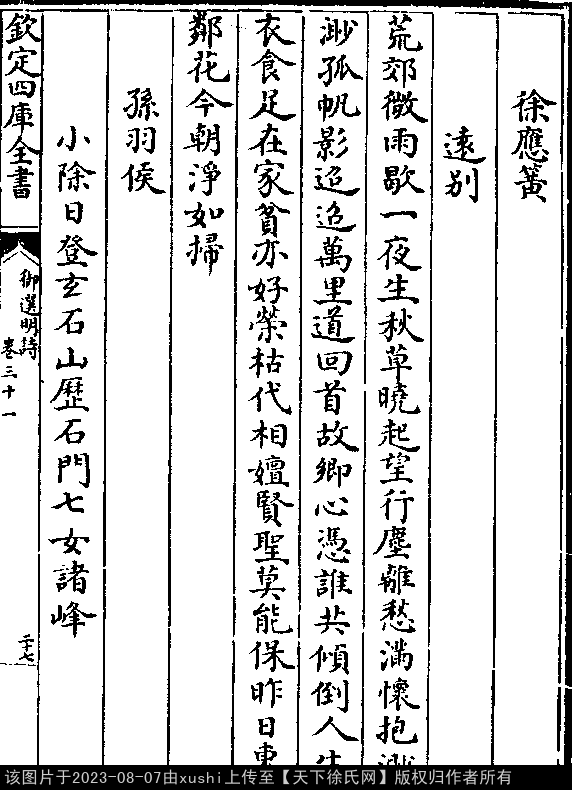 徐應簧
遠别
荒郊微雨歇一夜生秋草曉起望行塵離愁滿懷抱渺
渺孤帆影迢迢萬里道回首故鄉心憑誰共傾倒人生
衣食足在家貧亦好榮枯代相嬗賢聖莫能保昨日東
鄰花今朝淨如掃
孫羽侯
小除日登玄石山歷石門七女諸峰
欽定四庫全書
御選明詩
卷三十一
二十七
该图片于2023-08-07由xushi上传至【天下徐氏网】版权归作者所有